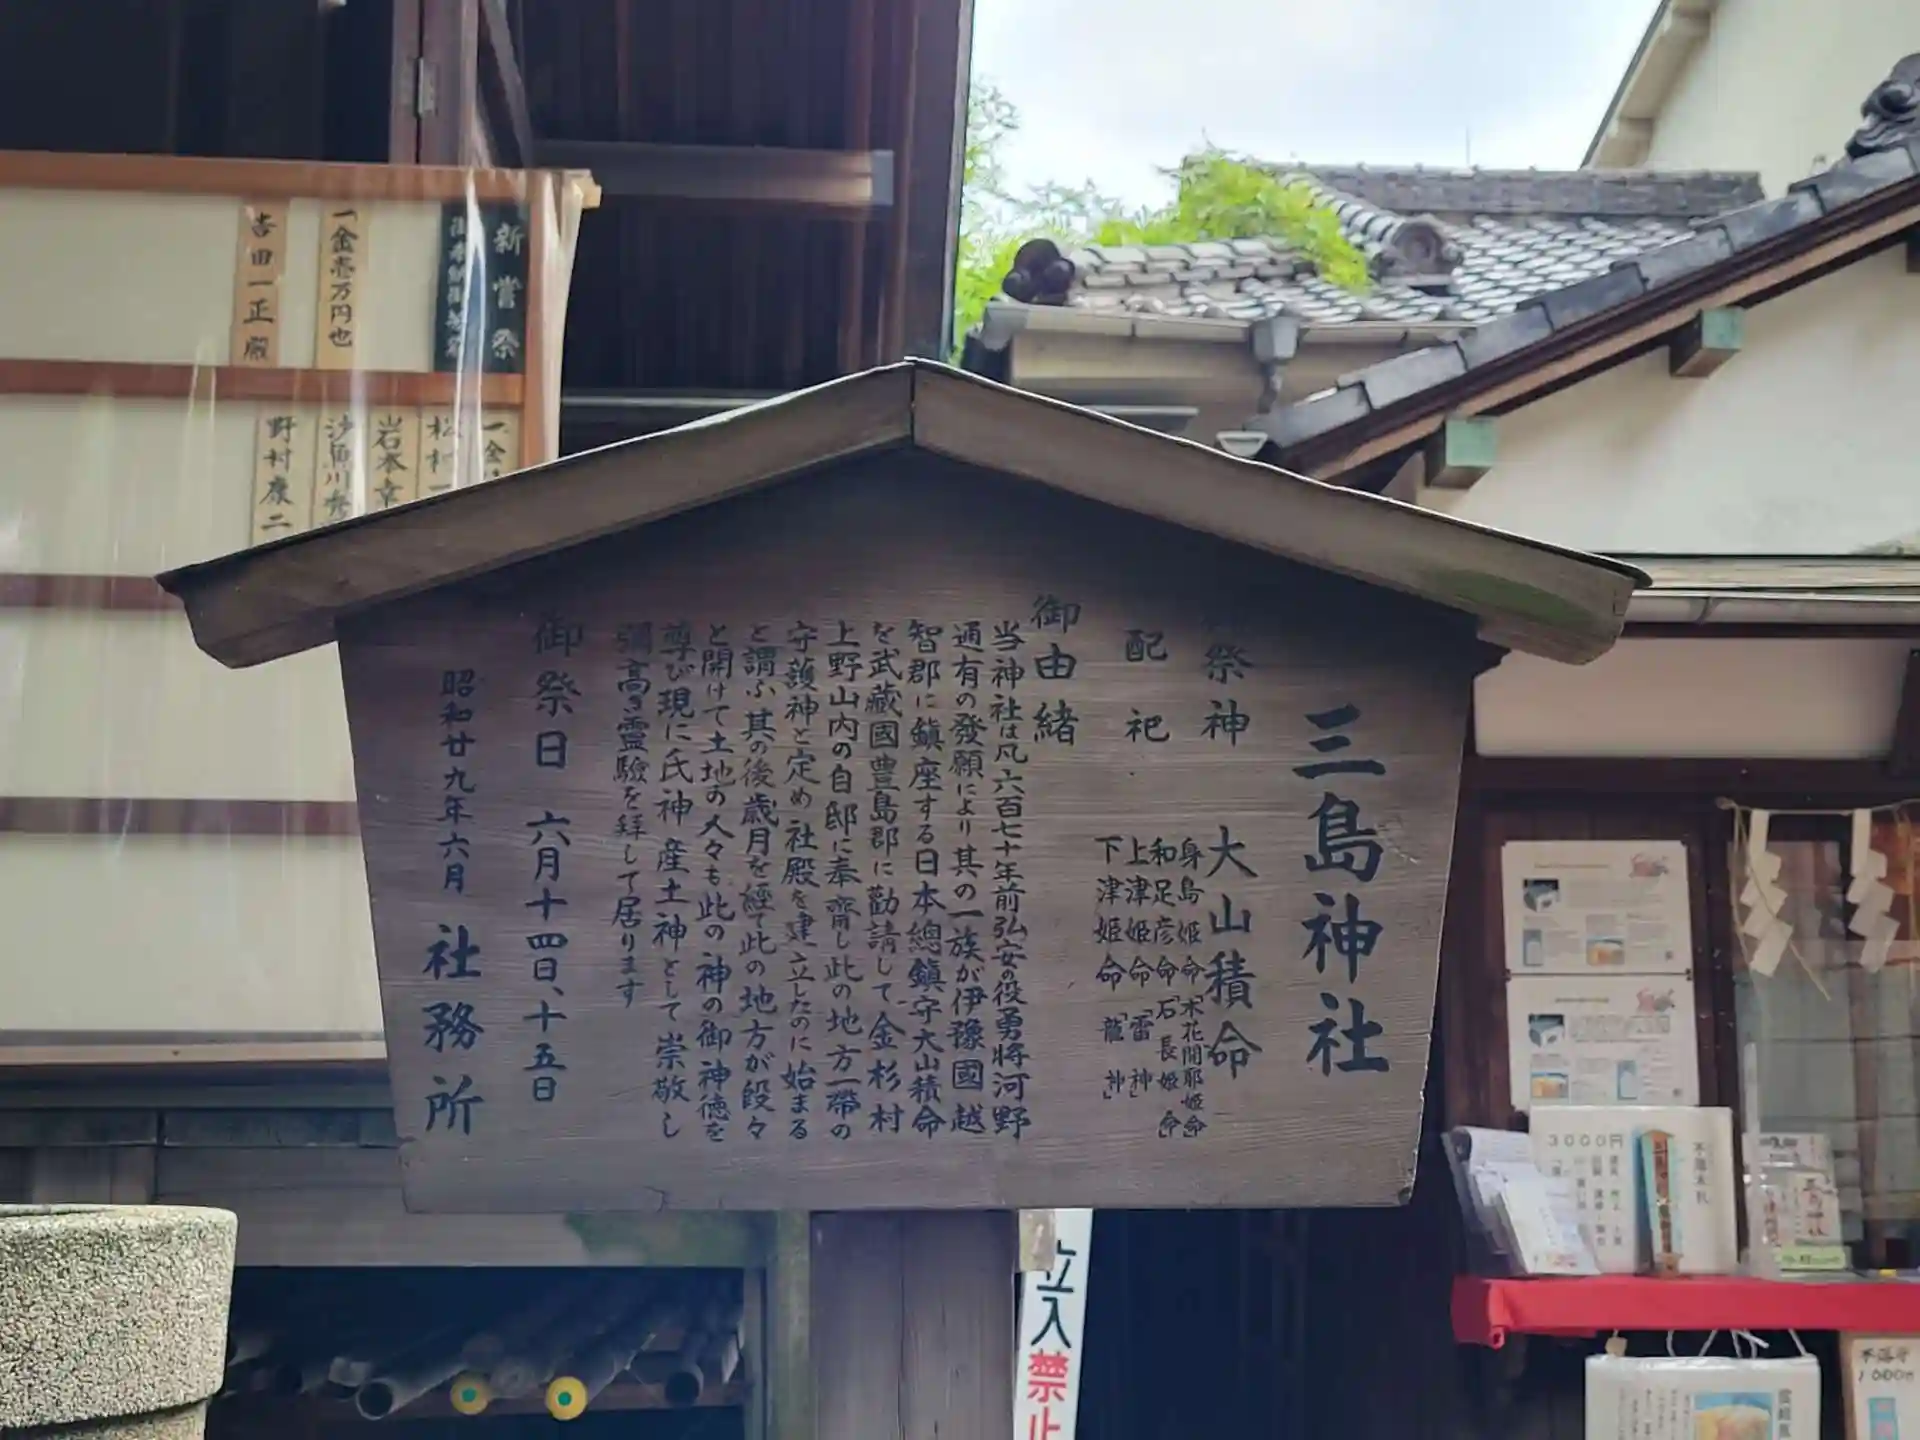 三島神社
祭神 大山積命
配祀
身島姫命「木花開耶姫命」
和足彦命「石長姫命」
上津姫命「雷神」
下津姫命「龍神」
御由緒
当神社は凡六百七十年前弘安の役勇將河野
通有の發願により其の一族が伊豫國越
智郡に鎮座する日本總鎮守大山積命
を武蔵國豊島郡に勸請して金杉村
上野山内の自邸に奉齋し此の地方一帶の
守護神と定め社殿を建立したのに始まる
と謂ふ其の後歳月を經て此の地方が段々
と開けて土地の人々も此の神の御神徳を
尊び現に氏神産土神として崇敬し
彌高き霊驗を拝して居ります
御祭日 六月十四日、十五日
昭和廿九年六月 社務所
新嘗祭
一金壱万円也
吉田一正殿
一金
松村一
岩本幸
野村康二
立入禁止
3000円
1000円